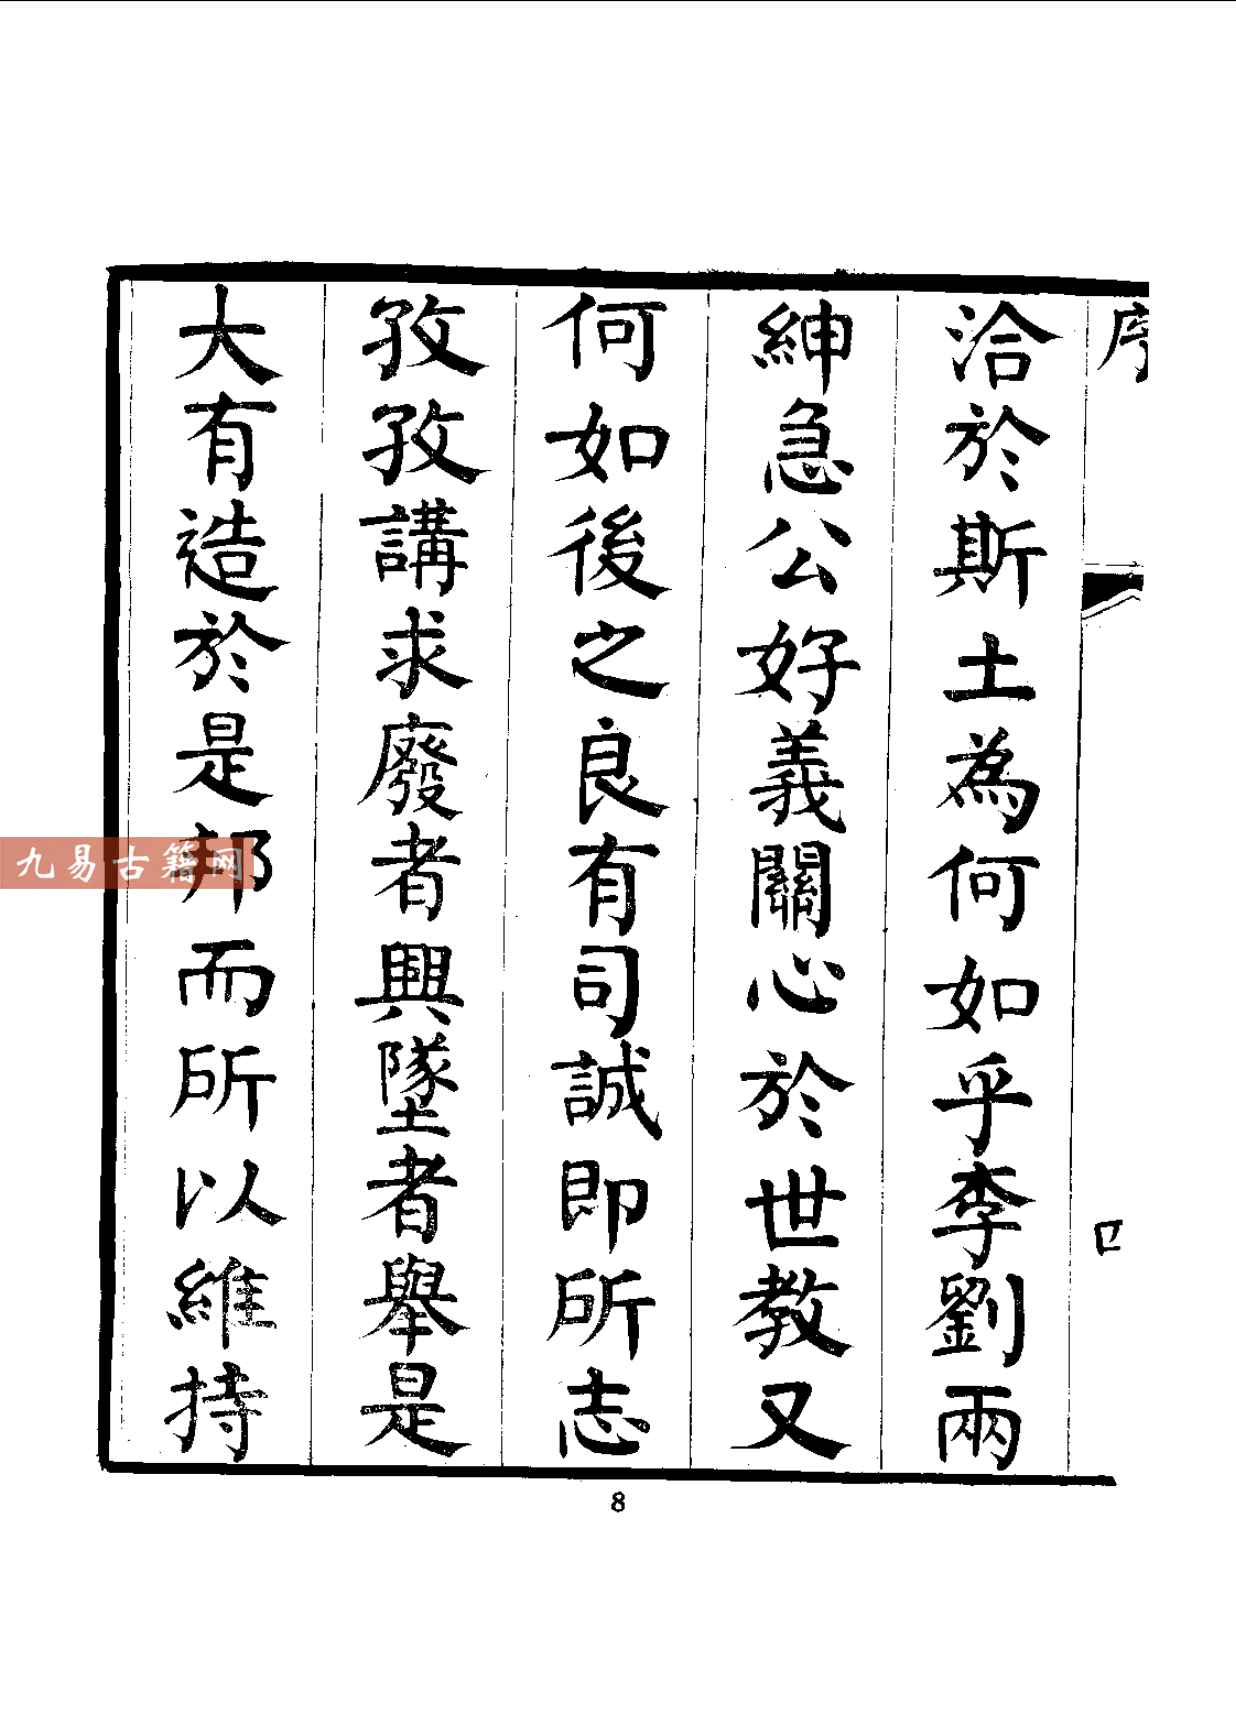 序
洽於斯土為何如乎李劉兩
紳急公好義關心於世教又
何如後之良有司誠即所志
孜孜講求廢者興墜者舉是
大有造於是邦而所以維持
九易古籍网
8